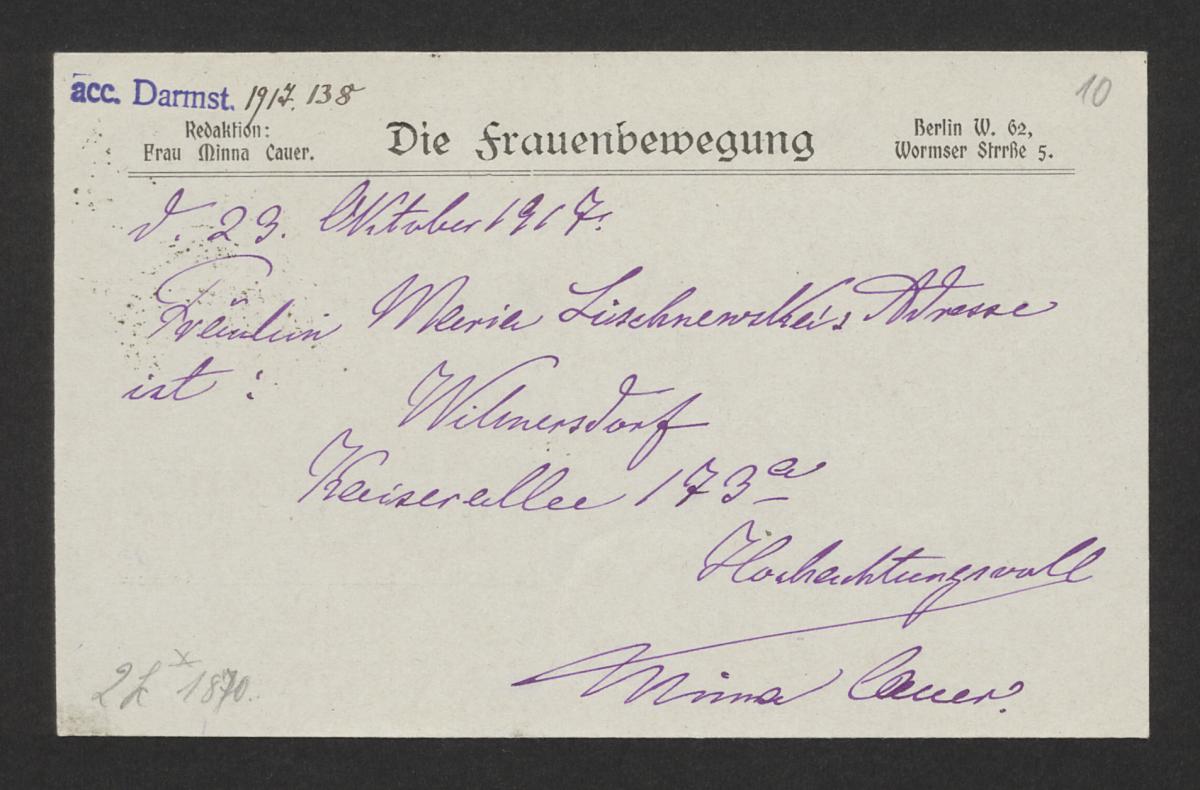 acc. Darmst. 1917. 138
10
Redaktion:
Frau Minna Cauer.
Die Frauenbewegung
Berlin W. 62,
Wormser Strrße 5.
d. 23. Oktober 1917.
Fräulein Maria Lischnewska's Adresse
ist :
Wilmersdorf
Kaiserallee 173a
Hochachtungsvoll
Minna Cauer.
1870.